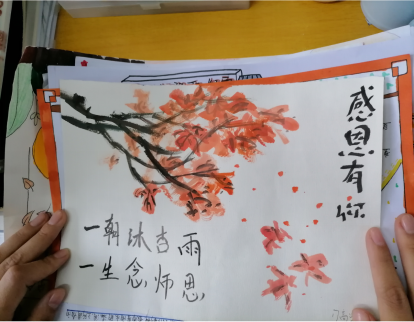 感恩有你
一朝沐杏雨
一生念师恩